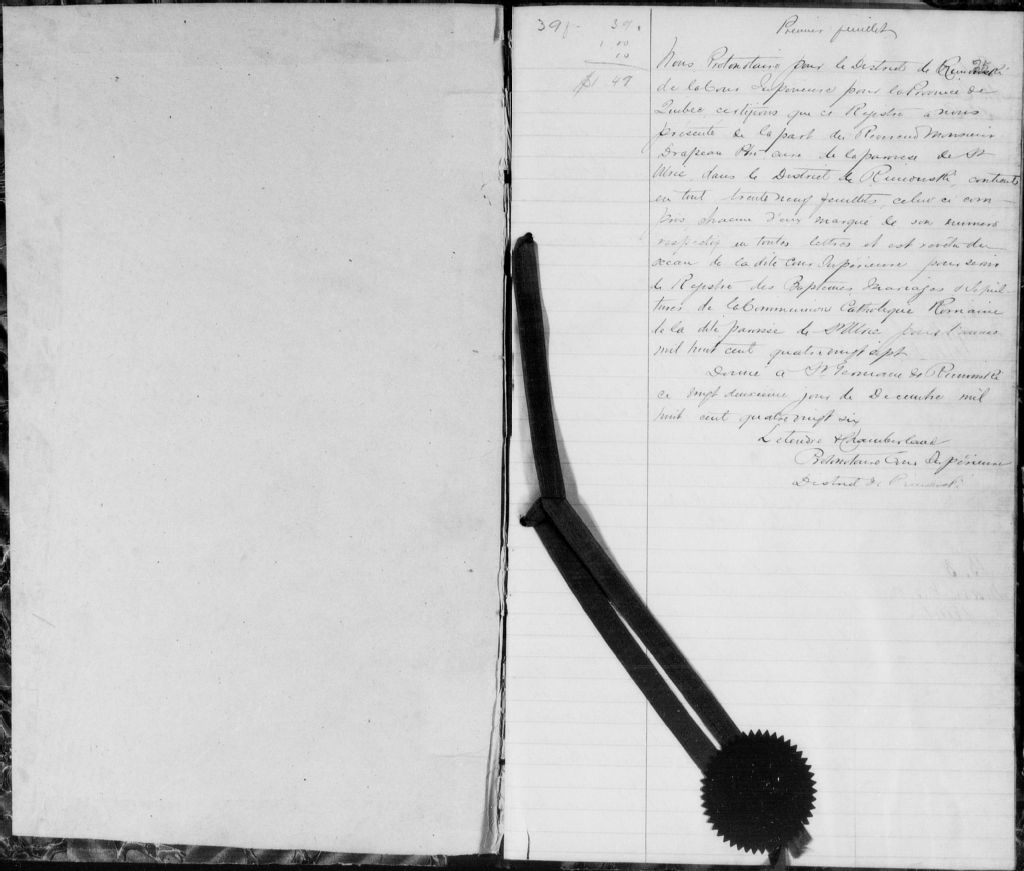 39 f. 39.
1.00
10
$1.49
Premier feuillet
Nous Protonotaire pour le District de Rimouski
de la Cour Supérieure pour la Province de
Québec, certifions que ce Registre a nous
présenté de la part du Révérend Monsieur
Drapeau Ptre curé de la paroisse de St
Ulric, dans le District de Rimouski, contient
en tout trente neuf feuillets, celui ci com-
pris, chacun d'eux marqué de son numero
respectif en toutes lettres et est revetu du
sceau de la dite Cour Supérieure pour servir
de Registre des Baptemes Mariages & Sepul-
tures de la Communion Catholique Romaine
de la dite paroisse de St Ulric pour l'année
mil huit cent quatre vingt sept
Donné à St Germain de Rimouski
ce vingt deuxieme jour de Decembre mil
huit cent quatre vingt six
Letendre & Chamberland
Protonotaire Cour Supérieure
District de Rimouski